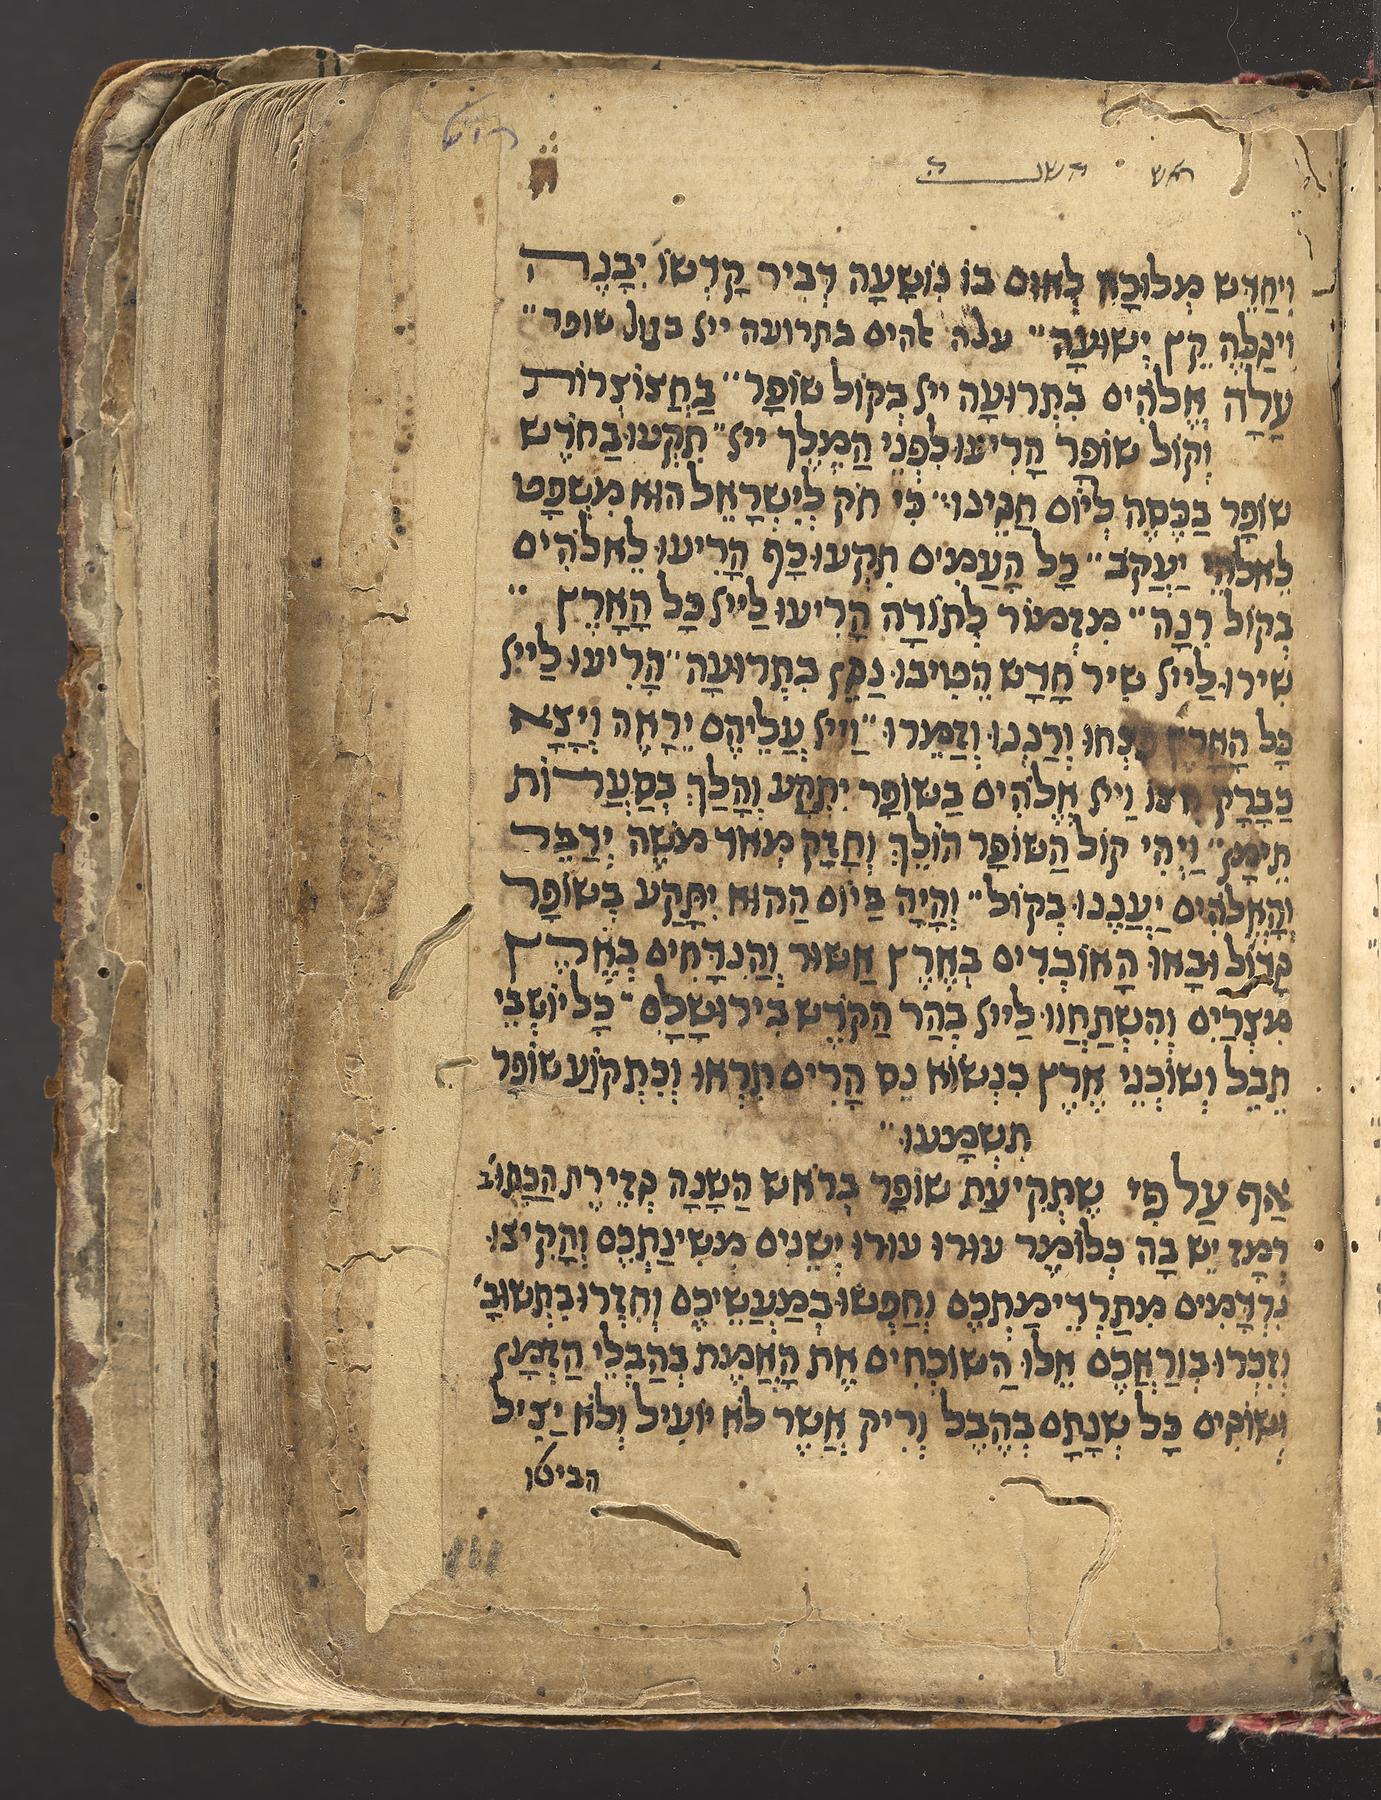 ראש השנה
וִיחַדֵּשׁ מְלוּכָא לְאוֹם בּוֹ נוֹשָׁעָה דְּבִיר קָדְשׁוֹ יִבָּנֶה
וִיגַלֶּה קֵץ יְשׁוּעָה״ עלה אהים בתרועה ייי בקול שופר״
עָלָה אֱלֹהִים בִּתְרוּעָה ייי בְּקוֹל שׁוֹפָר״ בַּחֲצוֹצְרוֹת
וְקוֹל שׁוֹפָר הָרִיעוּ לִפְנֵי הַמֶּלֶךְ ייי״ תִּקְעוּ בַחֹדֶשׁ
שׁוֹפָר בַּכֶּסֶה לְיוֹם חַגֵּינוּ״ כִּי חֹק לְיִשְׂרָאֵל הוּא מִשְׁפָּט
לֵאלֹהֵי יַעֲקֹב״ כָּל הָעַמִּים תִּקְעוּ כָף הָרִיעוּ לֵאלֹהִים
בְּקוֹל רִנָּה״ מִזְמוֹר לְתוֹדָה הָרִיעוּ לַייי כָּל הָאָרֶץ ״
שִׁירוּ לַייי שִׁיר חָדָשׁ הֵטִיבוּ נַגֵּן בִּתְרוּעָה״ הָרִיעוּ לַייי
כָּל הָאָרֶץ פִּצְחוּ וְרַנְּנוּ וְזַמֵּרוּ״ וַייי עֲלֵיהֶם יֵרָאֶה וְיָצָא
כַבָּרָק חִצּוֹ וַייי אֱלֹהִים בַּשּׁוֹפָר יִתְקָע וְהָלַךְ בְּסַעֲרוֹת
תֵּימָן״ וַיְהִי קוֹל הַשּׁוֹפָר הוֹלֵךְ וְחָזֵק מְאֹד מֹשֶׁה יְדַבֵּר
וְהָאֱלֹהִים יַעֲנֶנּוּ בְקוֹל״ וְהָיָה בַּיּוֹם הַהוּא יִתָּקַע בְּשׁוֹפָר
גָּדוֹל וּבָאוּ הָאוֹבְדִים בְּאֶרֶץ אַשּׁוּר וְהַנִּדָּחִים בְּאֶרֶץ
מִצְרַיִם וְהִשְׁתַּחֲווּ לַייי בְּהַר הַקֹּדֶשׁ בִּירוּשָׁלָםִ״ כָּל יוֹשְׁבֵי
תֵבֵל וְשׁוֹכְנֵי אָרֶץ כִּנְשׂוֹא נֵס הָרִים תִּרְאוּ וְכִתְקוֹעַ שׁוֹפָר
תִּשְׁמָעוּ״
אַף עַל פִּי שֶׁתְּקִיעַת שׁוֹפָר בְּרֹאשׁ הַשָּׁנָה גְּזֵירַת הַכָּתוּב
רֶמֶז יֵשׁ בָּהּ כְּלוֹמַר עוּרוּ עוּרוּ יְשֵׁנִים מִשֵּׁינַתְכֶם וְהָקִיצוּ
נִרְדָּמִים מִתַּרְדֵּימַתְכֶם וְחַפְּשׂוּ בְּמַעֲשֵׂיכֶם וְחִזְרוּ בִּתְשׁוּבָ׳
וְזִכְרוּ בּוֹרַאֲכֶם אֵלּוּ הַשּׁוֹכְחִים אֶת הָאֱמֶת בְּהַבְלֵי הַזְּמָן
וְשׁוֹגִים כָּל שְׁנָתָם בְּהֶבֶל וְרִיק אֲשֶׁר לֹא יוֹעִיל וְלֹא יַצִּיל
הביטו